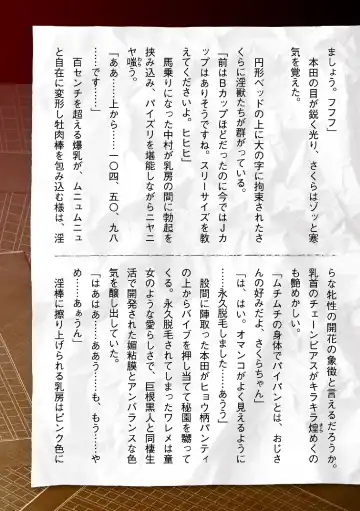 ましょう。フフフ」
本田の目が鋭く光り、さくらはゾッと寒
気を覚えた。
円形ベッドの上に大の字に拘束されたさ
くらに淫獣たちが群がっている。
「前はBカップほどだったのに今ではJカ
ップはありそうですね。スリーサイズを教
えてくださいよ。ヒヒヒ」
馬乗りになった中村が乳房の間に勃起を
挟み込み、パイズリを堪能しながらニヤニ
ヤ嗤う。
「ああ……上から……一〇四、五〇、九八
……です……」
百センチを超える爆乳が、ムニュムニュ
と自在に変形し牡肉棒を包み込む様は、淫
らな牝性の開花の象徴と言えるだろうか。
乳首のチェーンピアスがキラキラ煌めくの
も艶めかしい。
「ムチムチの身体でパイパンとは、おじさ
んの好みだよ、さくらちゃん」
「は、はい。オマンコがよく見えるように
……永久脱毛しました……あうう」
股間に陣取った本田がヒョウ柄パンティ
の上からバイブを押し当てて秘園を嬲って
「はあはあ……ああう……も、もう……や
め……あぁうん」
淫棒に擦り上げられる乳房はピンク色に